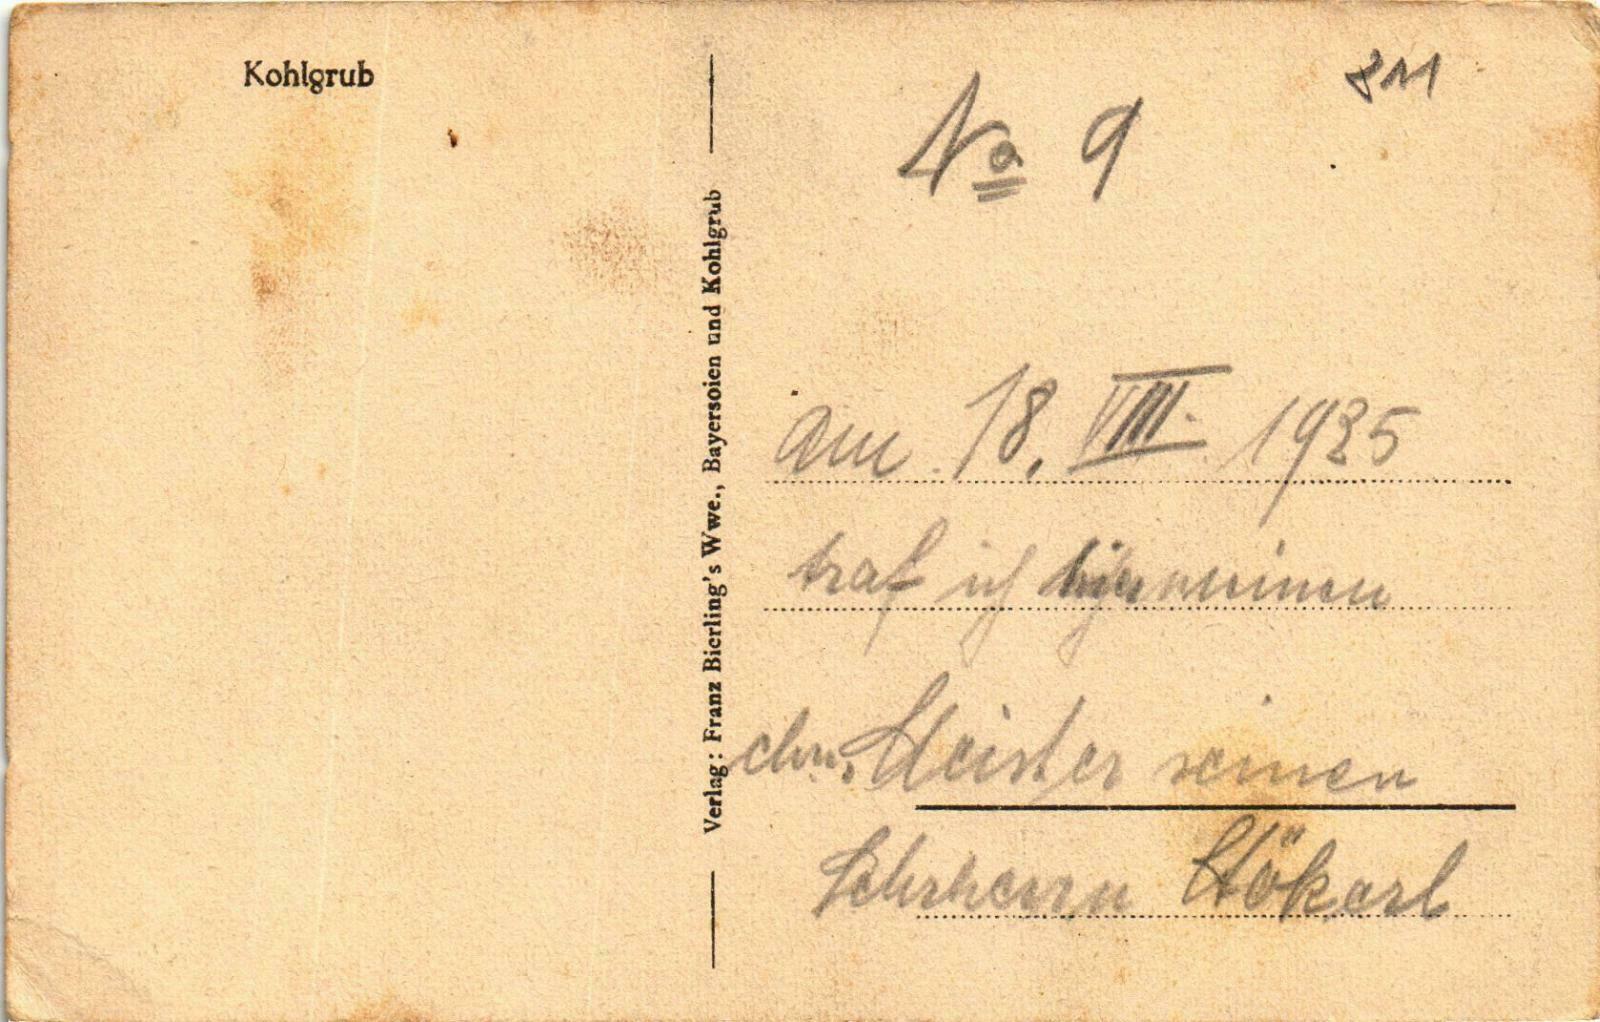 Kohlgrub
811
No 9
Verlag: Franz Bierling's Wwe., Bayersoien und Kohlgrub
am 18. VIII. 1925
traf ich meinen
Meister seinen
Lehrherrn Stökerl